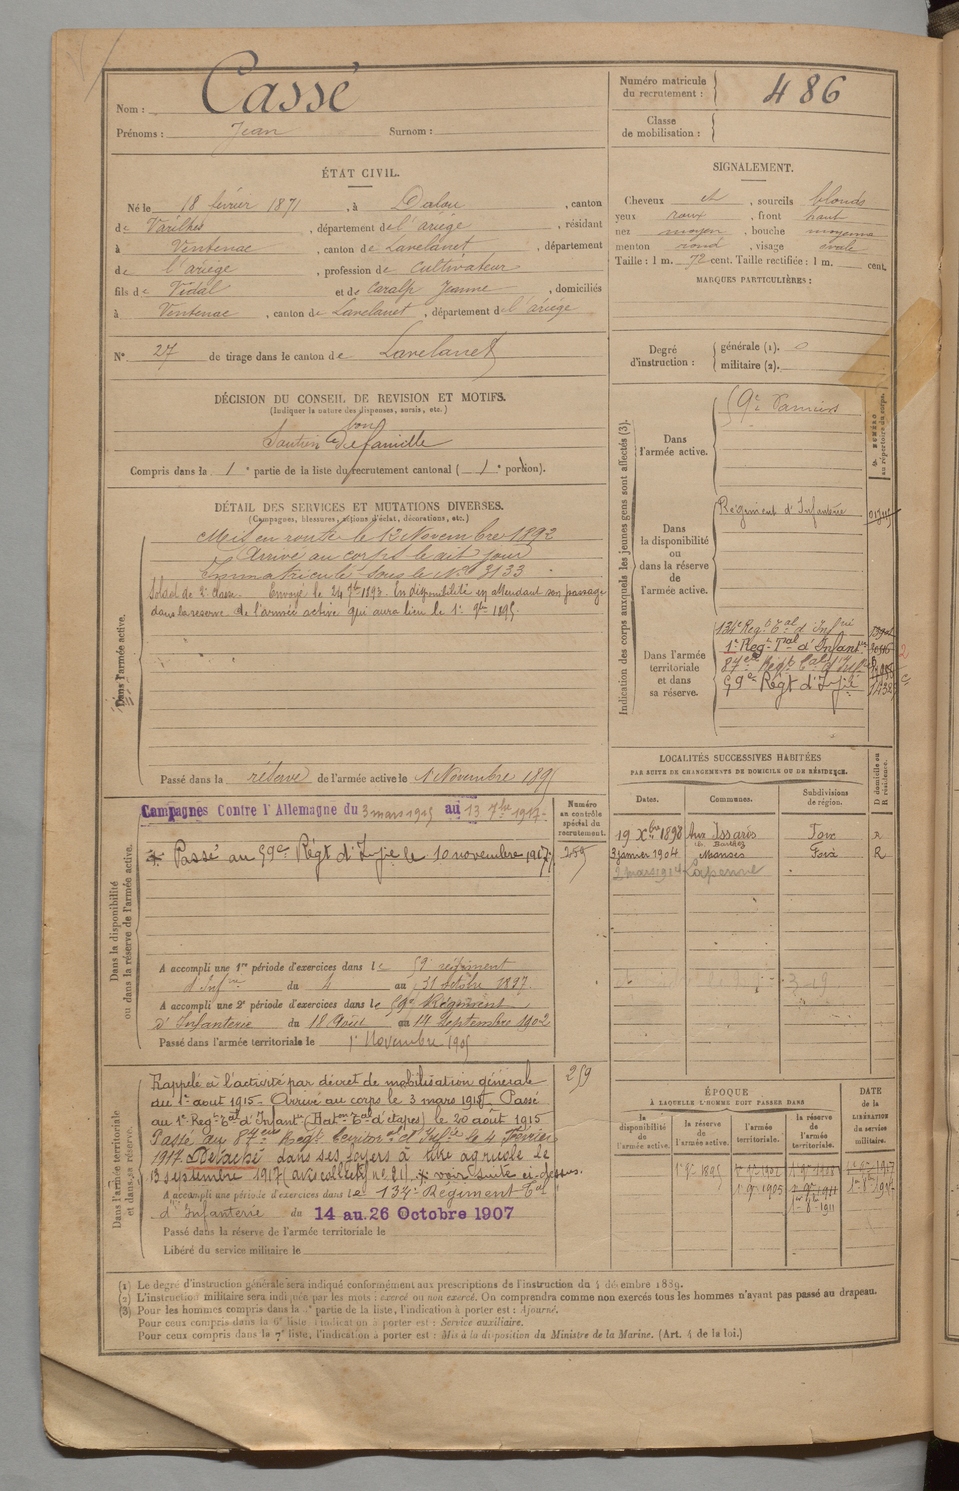 Nom : Cassé
Prénoms : Jean Surnom :
Numéro matricule du recrutement : 486
Classe de mobilisation :
ÉTAT CIVIL.
Né le 18 février 1871, à Dalou, canton
de Varilhes, département de l'ariège, résidant
à Ventenac, canton de Lavelanet, département
de l'ariège, profession de cultivateur
fils de Vidal et de Caralp Jeanne, domiciliés
à Ventenac, canton de Lavelanet, département de l'ariège
N° 27 de tirage dans le canton de Lavelanet
SIGNALEMENT.
Cheveux et, sourcils blonds
yeux roux, front haut
nez moyen, bouche moyenne
menton rond, visage ovale
Taille : 1 m. 72 cent. Taille rectifiée : 1 m. cent.
MARQUES PARTICULIÈRES :
Degré d'instruction : générale (1). 0
militaire (2).
DÉCISION DU CONSEIL DE REVISION ET MOTIFS.
(Indiquer la nature des dispenses, sursis, etc.)
bon
Soutien de famille
Compris dans la 1e partie de la liste du recrutement cantonal ( 1e portion).
DÉTAIL DES SERVICES ET MUTATIONS DIVERSES.
(Campagnes, blessures, actions d'éclat, décorations, etc.)
Dans l'armée active.
Mis en route le 13 Novembre 1892
Arrivé au corps le dit jour
Immatriculé sous le No 3133
Soldat de 2e classe. Envoyé le 24 7bre 1893. En disponibilité en attendant son passage
dans la réserve de l'armée active qui aura lieu le 1er 9bre 1895.
Passé dans la réserve de l'armée active le 1 Novembre 1895
Indication des corps auxquels les jeunes gens sont affectés (3).
NUMÉRO au répertoire du corps.
Dans l'armée active.
59e Pamiers
Dans la disponibilité ou dans la réserve de l'armée active.
Régiment d'Infanterie
Dans l'armée territoriale et dans sa réserve.
134e Regt Tal d'Infrie
1e Regt Tal d'Infantie
87e Regt Tal d'Infie
59e Régt d'Infie
Dans la disponibilité ou dans la réserve de l'armée active.
Campagnes Contre l'Allemagne du 3 mars 1915 au 13 7bre 1917
Numéro au contrôle spécial du recrutement.
Passé au 59e Régt d'Infie le 10 novembre 1917. 259
A accompli une 1re période d'exercices dans le 59e régiment
d'Infrie du 4 au 31 octobre 1897.
A accompli une 2e période d'exercices dans le 59e Régiment
d'Infanterie du 18 Août au 14 Septembre 1902
Passé dans l'armée territoriale le 1er Novembre 1905
LOCALITÉS SUCCESSIVES HABITÉES
PAR SUITE DE CHANGEMENTS DE DOMICILE OU DE RÉSIDENCE.
Dates. Communes. Subdivisions de région. D domicile ou R résidence.
19 Xbre 1898 Aux Issards Foix R
3 janvier 1904 Manses Foix R
2 mars 1914 Lapenne
Dans l'armée territoriale et dans sa réserve.
Rappelé à l'activité par décret de mobilisation générale 259
du 1er août 1915. Arrivé au corps le 3 mars 1915. Passé
au 1er Regt Tal d'Infantie (Baton Tal d'étapes) le 20 août 1915
Passé au 87eme Regt territorial d'Infie le 4 Février
1917 Détaché dans ses foyers à titre agricole le
13 septembre 1917 (avis collectif no 21). * voir suite ci-dessus.
A accompli une période d'exercices dans le 134e Régiment Tal
d'Infanterie du 14 au 26 Octobre 1907
Passé dans la réserve de l'armée territoriale le
Libéré du service militaire le
ÉPOQUE
À LAQUELLE L'HOMME DOIT PASSER DANS
la disponibilité de l'armée active. la réserve de l'armée active. l'armée territoriale. la réserve de l'armée territoriale. DATE de la LIBÉRATION du service militaire.
1er 9bre 1895
1er 9 1905
(1) Le degré d'instruction générale sera indiqué conformément aux prescriptions de l'instruction du 4 décembre 1889.
(2) L'instruction militaire sera indiquée par les mots : exercé ou non exercé. On comprendra comme non exercés tous les hommes n'ayant pas passé au drapeau.
(3) Pour les hommes compris dans la 5e partie de la liste, l'indication à porter est : Ajourné.
Pour ceux compris dans la 6e liste l'indication à porter est : Service auxiliaire.
Pour ceux compris dans la 7e liste, l'indication à porter est : Mis à la disposition du Ministre de la Marine. (Art. 4 de la loi.)